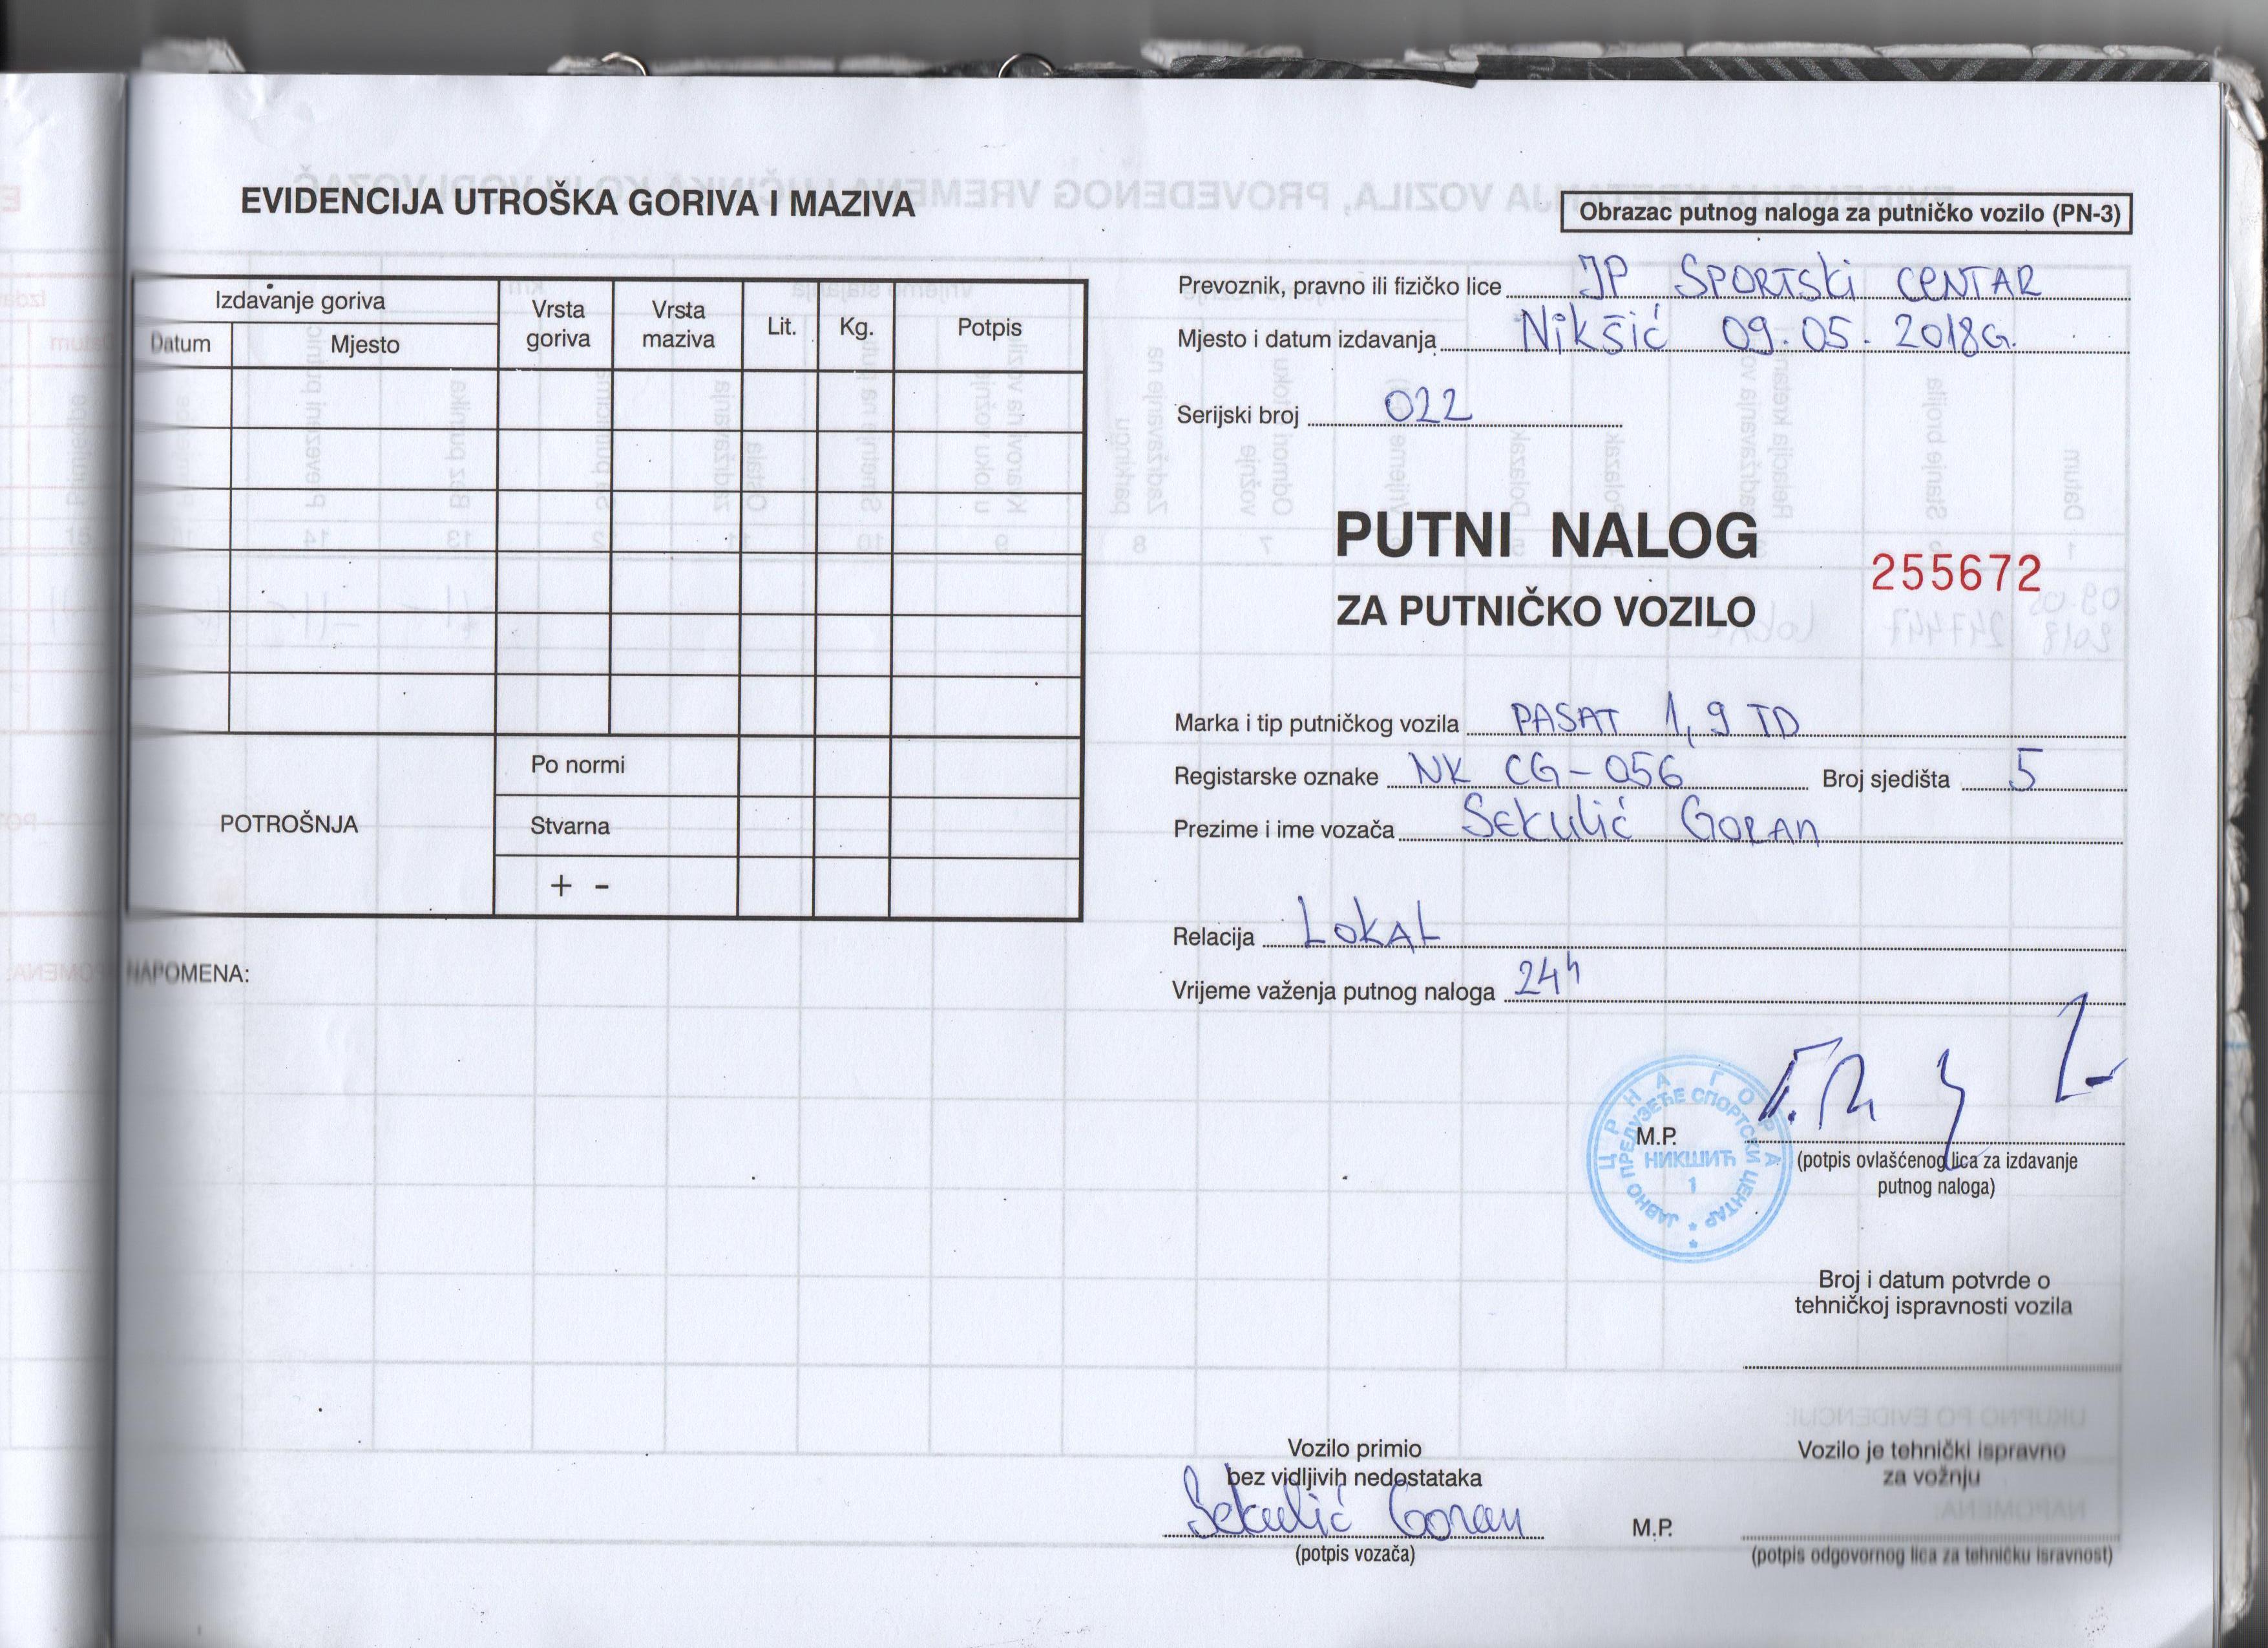 EVIDENCIJA UTROŠKA GORIVA I MAZIVA
Izdavanje goriva
Datum
Mjesto
Vrsta goriva
Vrsta maziva
Lit.
Kg.
Potpis
POTROŠNJA
Po normi
Stvarna
+ -
NAPOMENA:
Obrazac putnog naloga za putničko vozilo (PN-3)
Prevoznik, pravno ili fizičko lice JP SPORTSki CENTAR
Mjesto i datum izdavanja Nikšić 09.05.2018G.
Serijski broj 022
PUTNI NALOG
255672
ZA PUTNIČKO VOZILO
Marka i tip putničkog vozila PASAT 1,9 TD
Registarske oznake NK CG-056 Broj sjedišta 5
Prezime i ime vozača Sekulić Goran
Relacija LOKAL
Vrijeme važenja putnog naloga 24h
ЦРНА ГОРА
ЈАВНО ПРЕДУЗЕЋЕ СПОРТСКИ ЦЕНТАР
НИКШИЋ
1
M.P.
(potpis ovlašćenog lica za izdavanje
putnog naloga)
Broj i datum potvrde o
tehničkoj ispravnosti vozila
Vozilo primio
bez vidljivih nedostataka
Sekulić Goran
(potpis vozača)
M.P.
Vozilo je tehnički ispravno
za vožnju
(potpis odgovornog lica za tehničku isravnost)